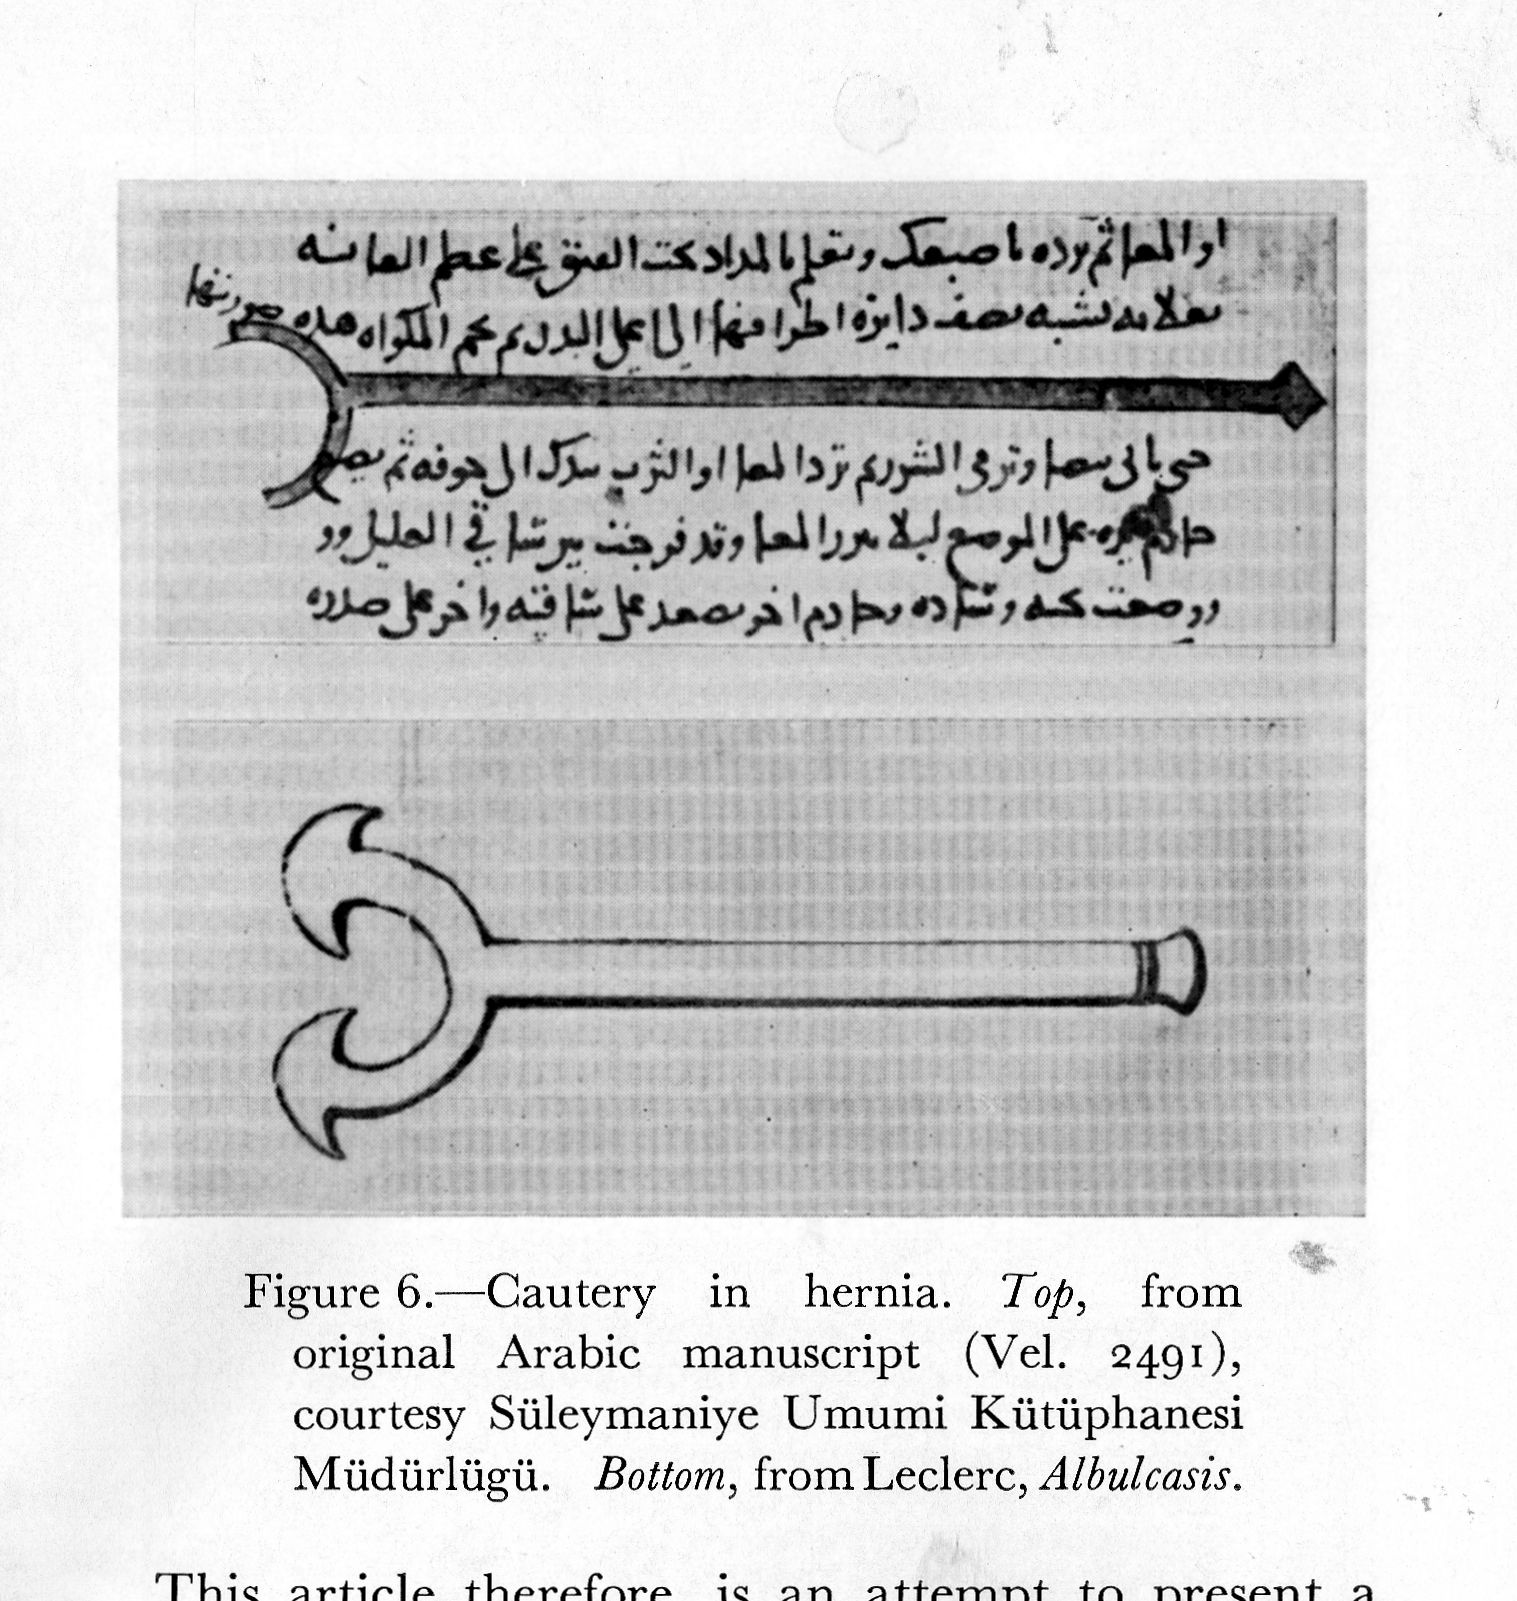 او المعا ثم ترده باصبعك وتعلم بالمداد تحت الفتق على عظم العانه
بعلامه تشبه نصف دايرة اطرافها الى اعلى البدن ثم تحمى المكواه هذه صورتها
حتى ياتى بيضا وترمى الشرر ثم ترد المعا او الثرب بيدك الى جوفه ثم يضع
خادم يده على الموضع ليلا يبرز المعا وقد فرجت بين ساقي العليل و
ووضعت تحته وساده وخادم اخر يقعد على ساقيه واخر على صدره
Figure 6.—Cautery in hernia. Top, from
original Arabic manuscript (Vel. 2491),
courtesy Süleymaniye Umumi Kütüphanesi
Müdürlügü. Bottom, from Leclerc, Albulcasis.
This article therefore is an attempt to present a